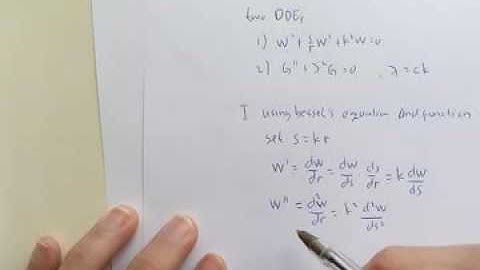 two ODEs
1) W'' + 1/r W' + k²W = 0
2) G'' + λ²G = 0 , λ = ck
I using bessel's equation and function
set s = kr
W' = dW/dr = dW/ds ds/dr = k dW/ds
W'' = d²W/dr = k² d²W/ds²